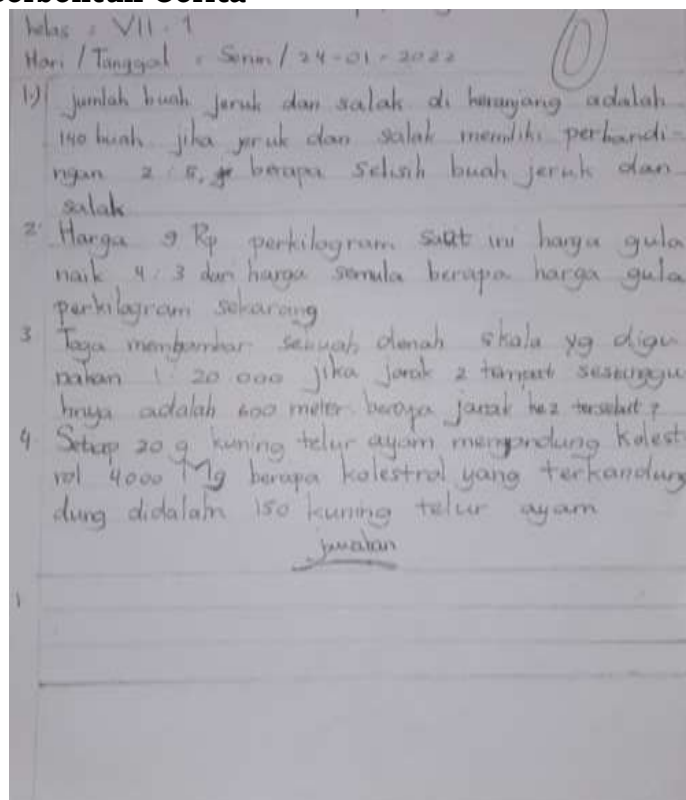 berbentuk Cerita
kelas : VII . 1
Hari / Tanggal : Senin / 24 - 01 - 2022
0
1.) jumlah buah jeruk dan salak di keranjang adalah
140 buah jika jeruk dan salak memiliki perbandi-
ngan 2 : 5, berapa selisih buah jeruk dan
salak
2 Harga g Rp perkilogram saat ini harga gula
naik 4 : 3 dari harga semula berapa harga gula
perkilogram sekarang
3 Toga menggambar sebuah denah skala yg digu
nakan 1 : 20 000 jika jarak 2 tempat sesunggu
hnya adalah 600 meter berapa jarak ke2 tersebut ?
4 Setiap 20 g kuning telur ayam mengandung kolest
rol 4000 Mg berapa kolestrol yang terkandung
dung didalam 150 kuning telur ayam
jwaban
1